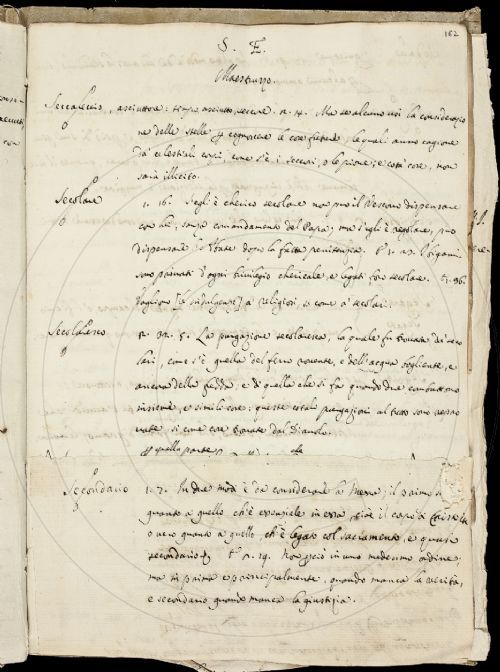 182
S. E.
Maestruzzo.
Seccaleccio, asciuttore: tempo asciutto, seccore. 2. 14. Ma se alcuno usi la considerazio
ne delle stelle p cognoscere le cose future, le quali anno cagione
da' celestiali corpi, come s'è i seccori, o le piove; e cotai cose, non
sarà illecito.
Secolare 1. 16. S'egli è cherico secolare non può il Vescovo dispensare
con lui, sanza comandamento del Papa; ma s'egli è regolare, può
dispensare l'Abate dopo la fatta penitenzia. I bigami
sono privati d'ogni privilegio chericale, e legati foro secolare. 96.
Vagliono [le indulgenze] a' religiosi, come a' secolari.
Secolaresco 2. 32. 5. La purgazione secolaresca, la quale fu trovata da' seco
lari, come s'è quella del ferro rovente, e dell'acqua bogliente, e
ancora della fredda, e di quella che si fa quando due combattono
insieme, e simile cose: queste cotali purgazioni al tutto sono
vate, si come cose trovate dal Diavolo.
p quella parte
Secondario 1. 7. In due modi è da considerare la Messa; il primo
quanto a quello ch'è essenziale in essa, cioè il corpo di Cristo
o vero quanto a quello, ch'è legato col sacramento, e quasi
secondario. 29. Non perciò in uno medesimo ordine;
ma in prima e principalmente, quando manca la verità,
e secondario quando manca la giustizia.